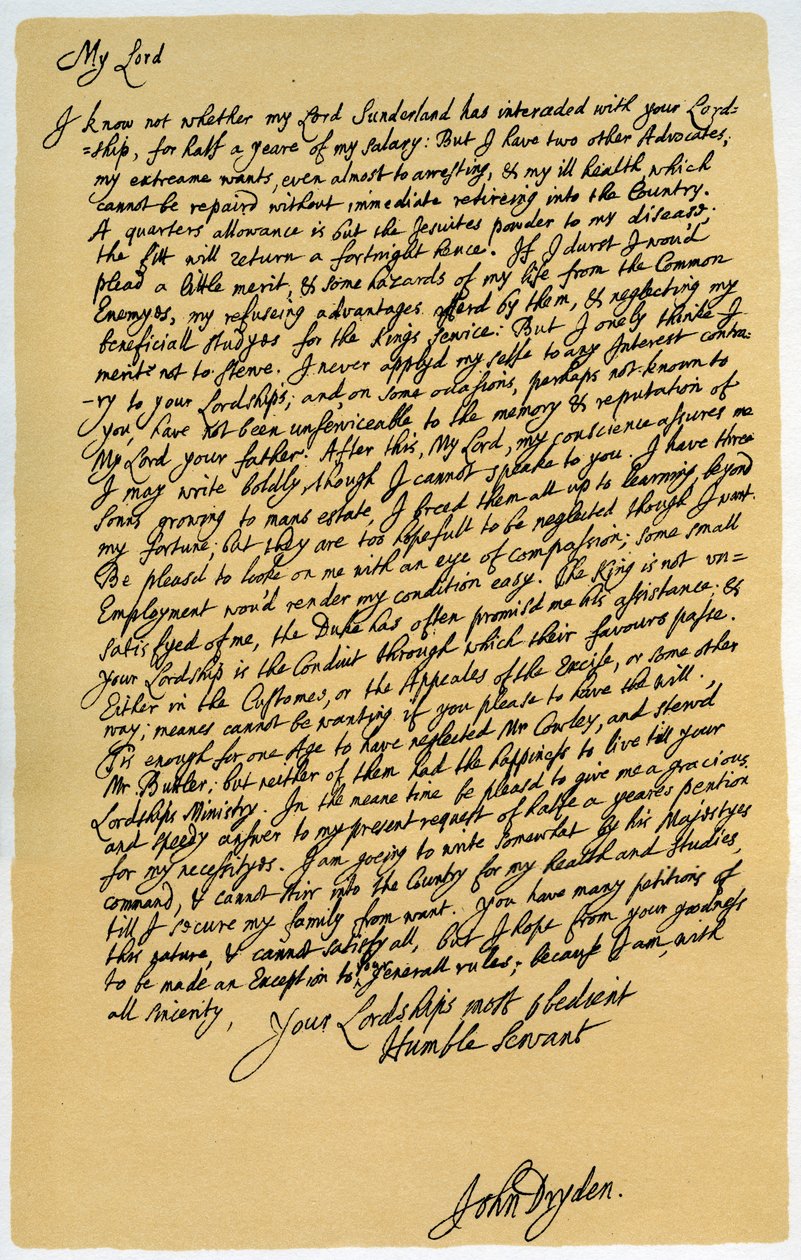 My Lord
I know not whether my Lord Sunderland has interceded with your Lord=
=ship, for half a yeare of my salary: But I have two other Advocates,
my extreame wants, even almost to arresting, & my ill health, which
cannot be repaird without immediate retireing into the Country.
A quarters allowance is but the Jesuites powder to my disease;
the fitt will return a fortnight hence. If I durst I wou'd
plead a little merit, & some hazards of my life from the Common
Enemyes, my refuseing advantages offerd by them, & neglecting my
beneficiall studyes for the King's service: But I onely thinke I
merit not to sterve. I never applyd my selfe to any Interest contra=
=ry to your Lordship's; and, on some occasions, perhaps not known to
you, have not been unserviceable to the memory & reputation of
My Lord your father. After this, My Lord, my conscience assures me
I may write boldly, though I cannot speake to you. I have three
Sonns growing to mans estate, I breed them all up to learning, beyond
my fortune; but they are too hopefull to be neglected though I want.
Be pleasd to looke on me with an eye of compassion; some small
Employment wou'd render my condition easy. The King is not un=
satisfyed of me, the Duke has often promisd me his assistance; &
your Lordship is the Conduit through which their favours passe.
Either in the Customes, or the Appeales of the Excise, or some other
way; meanes cannot be wanting if you please to have the will.
Tis enough for one Age to have neglected Mr Cowley, and sterv'd
Mr. Buttler; but neither of them had the happiness to live till your
Lordship's Ministry. In the meane time be pleasd to give me a gracious
and speedy answer to my present request of halfe a yeares pention
for my necessityes. I am goeing to write somewhat by his Majestyes
command, & cannot stirr into the Country for my health and studies,
till I secure my family from want. You have many petitions of
this nature, & cannot satisfy all, but I hope from your goodness
to be made an Exception to your generall rules; because I am, with
all sincerity,
Your Lordship's most obedient
Humble Servant
John Dryden.